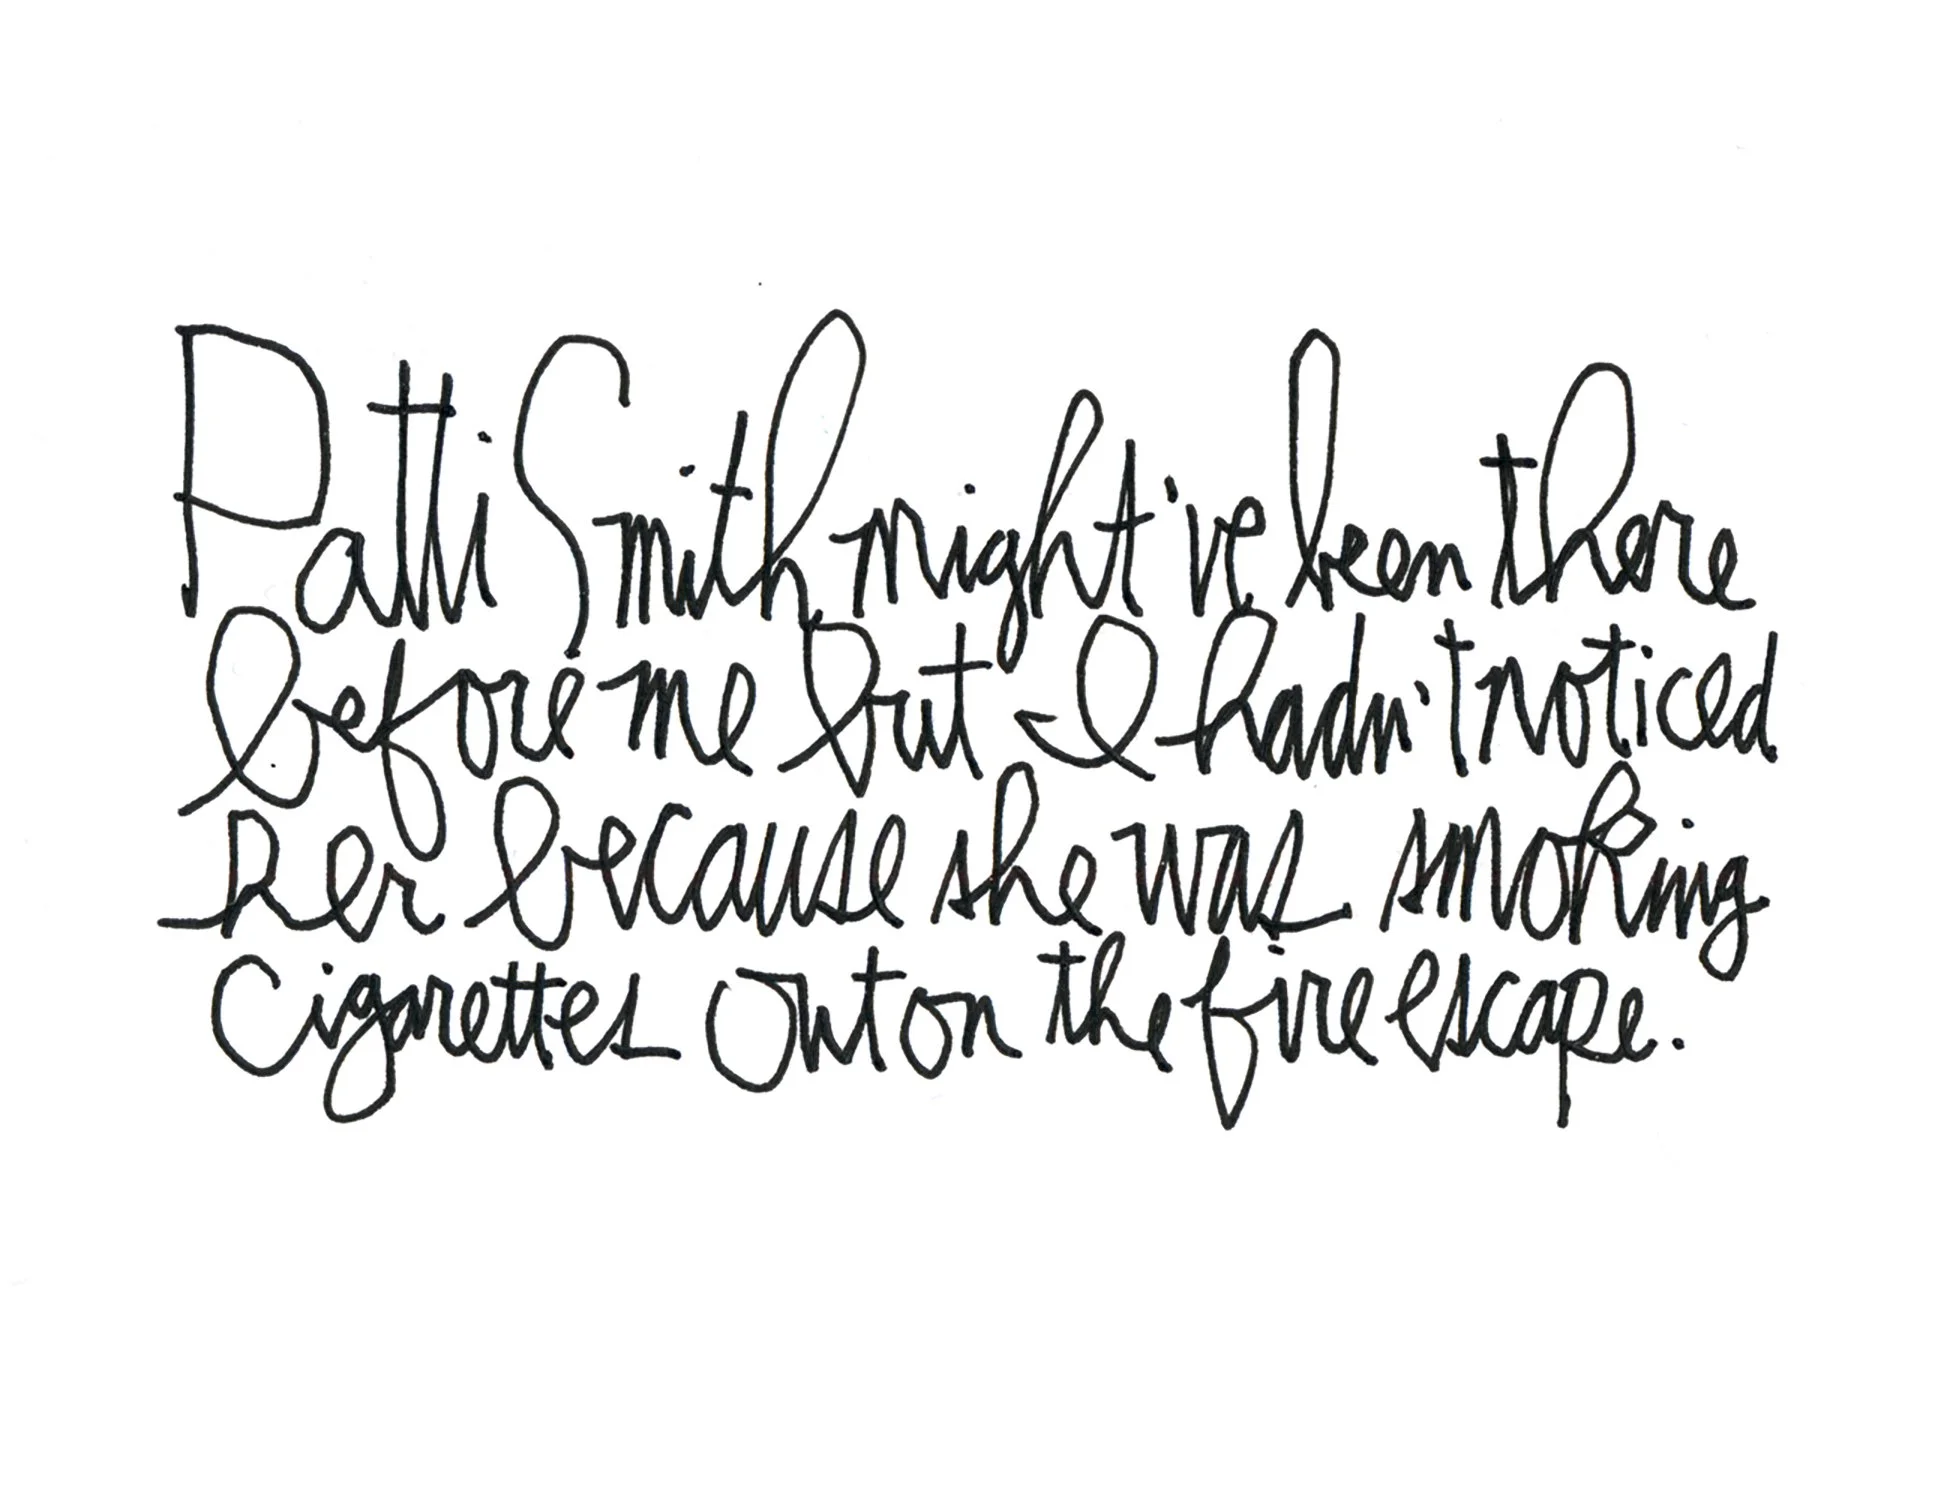 Patti Smith might've been there
before me but I hadn't noticed
her because she was smoking
cigarettes out on the fire escape.